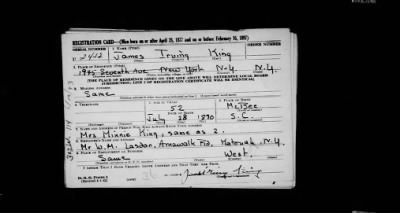 REGISTRATION CARD—(Men born on or after April 28, 1877 and on or before February 16, 1897)
SERIAL NUMBER
1. NAME (Print)
U 2412 James Irving King
2. PLACE OF RESIDENCE (Print)
1845 Seventh Ave New York N.Y. N.Y.
[THE PLACE OF RESIDENCE GIVEN ON THE LINE ABOVE WILL DETERMINE LOCAL BOARD
JURISDICTION; LINE 2 OF REGISTRATION CERTIFICATE WILL BE IDENTICAL]
3. MAILING ADDRESS
Same
4. TELEPHONE
52
McBee
July 28 1890 S.C.
7. NAME AND ADDRESS OF PERSON WHO WILL ALWAYS KNOW YOUR ADDRESS
Mrs Minnie King, same as 2.
8. EMPLOYER'S NAME AND ADDRESS
Mr W.M. Lasdon, Amawalk Rd, Katonah N.Y.
9. PLACE OF EMPLOYMENT OR BUSINESS
Same West.
I AFFIRM THAT I HAVE VERIFIED ABOVE ANSWERS AND THAT THEY ARE TRUE.
D. S. S. Form 1
James Irving King